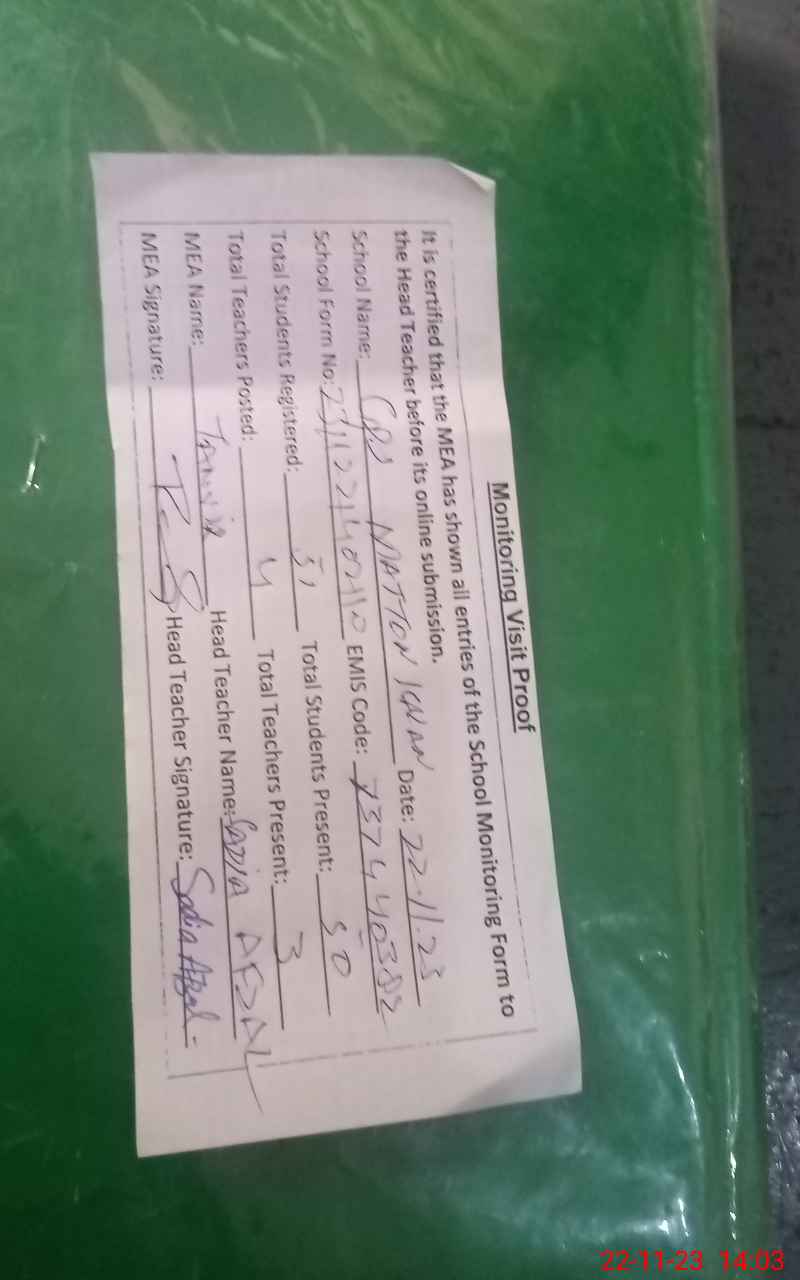 Monitoring Visit Proof
It is certified that the MEA has shown all entries of the School Monitoring Form to
the Head Teacher before its online submission.
School Name: GPS Date: 22.11.23
School Form No: EMIS Code:
Total Students Registered: 51 Total Students Present: 50
Total Teachers Posted: 4 Total Teachers Present: 3
MEA Name: Tanvir Head Teacher Name: SADIA AFZAL
MEA Signature: Head Teacher Signature: Sadia Afzal
22-11-23 14:03